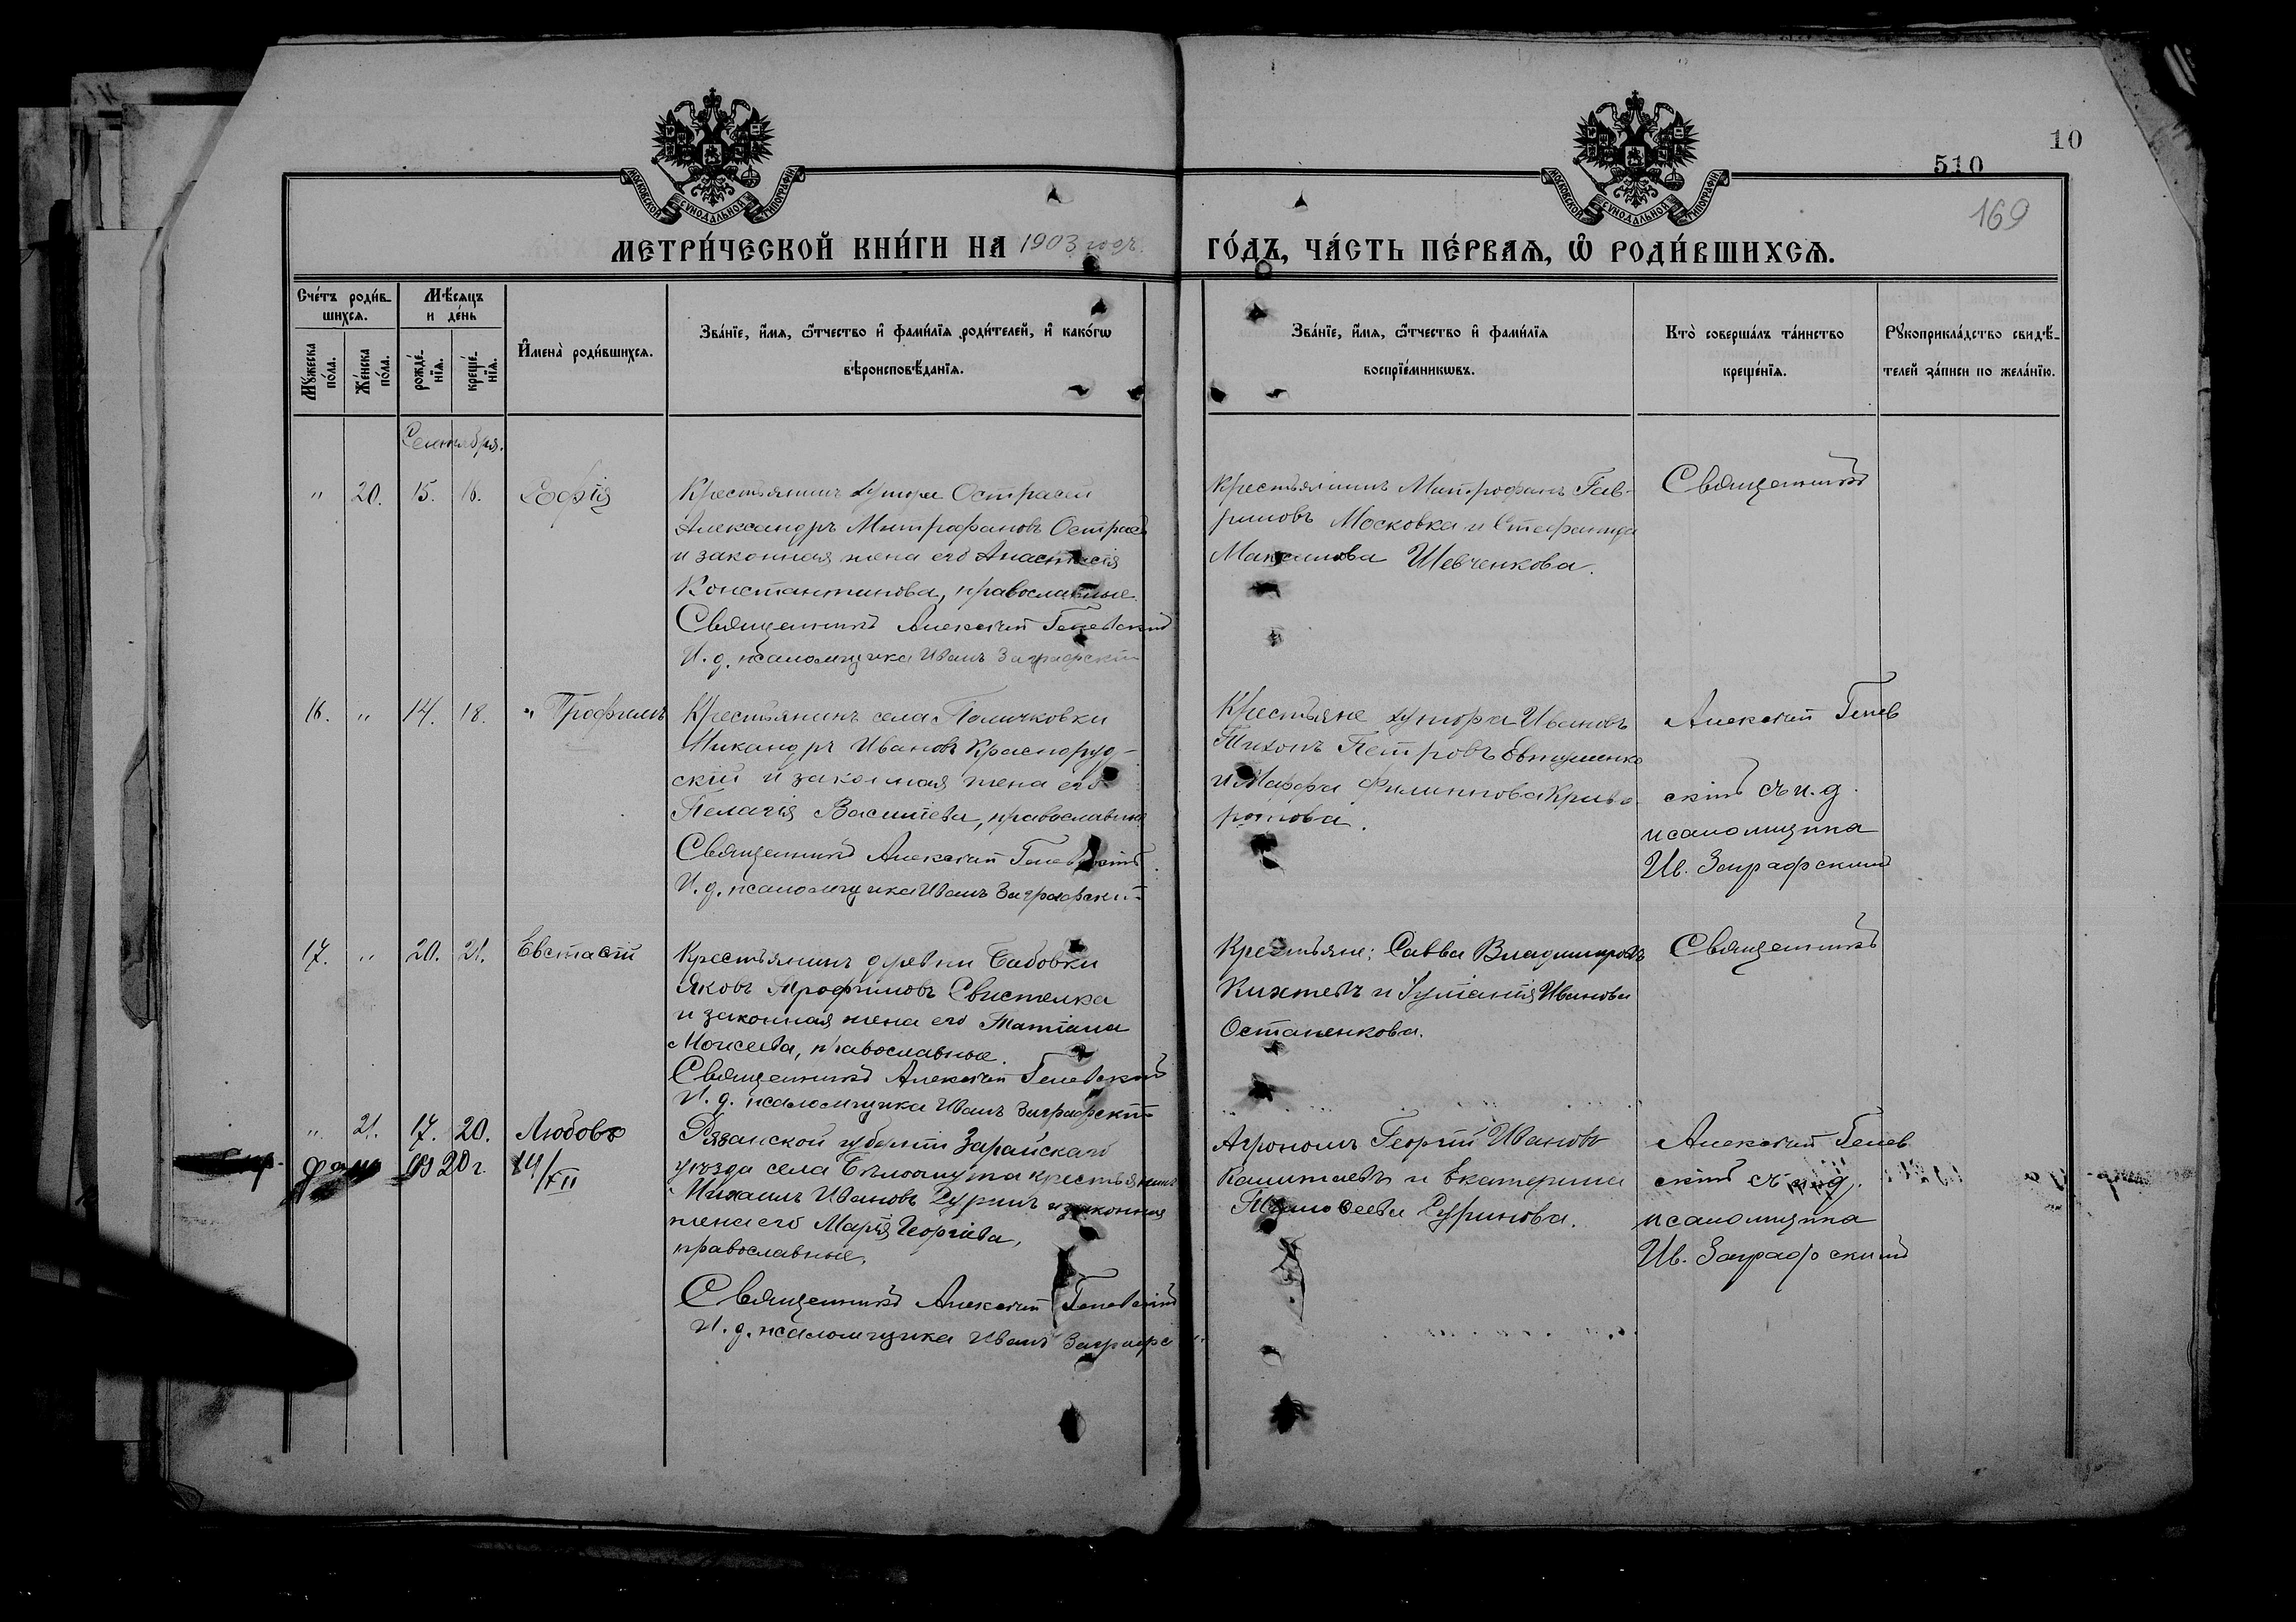 10
510
169
МОСКОВСКОЙ СѴНОДАЛЬНОЙ ТИПОГРАФІИ
МОСКОВСКОЙ СѴНОДАЛЬНОЙ ТИПОГРАФІИ
МЕТРИ́ЧЕСКОЙ КНИ́ГИ НА 1903 годъ.
ГО́ДЪ, ЧА́СТЬ ПЕ́РВАЯ, Ѽ РОДИ́ВШИХСЯ.
Сче́тъ роди́в-
шихся.
Мѣ́сяцъ
и де́нь
Мꙋ́жеска по́ла.
Же́нска по́ла.
рожде́-нїя.
креще́-нїя.
И҆мена̀ роди́вшихся.
Зва́нїе, и҆́мя, ѻ҆́тчество и҆ фами́лїя роди́телей, и҆ како́гѡ
вѣроисповѣ́данїя.
Зва́нїе, и҆́мя, ѻ҆́тчество и҆ фами́лїя
воспрїе́мникѡвъ.
Кто̀ соверша́лъ та́инство
креще́нїя.
Рꙋкоприкла́дство свидѣ́-
телей за́писи по жела́нїю.
Сентября.
" 20. 15. 16. Софія
Крестьянинъ хутора
Александръ Митрофановъ
и законная жена его Анастасія
Константинова, православные.
Священникъ Алексѣй
И. д. псаломщика Иванъ Заграфскій
Крестьянинъ Митрофанъ Гав-
риловъ Московка и Стефанида
Максимова Шевченкова.
Священникъ
16. " 14. 18. Трофимъ
Крестьянинъ села
Никандръ Ивановъ Красноруд-
скій и законная жена его
Пелагія Василіева, православные
Священникъ Алексѣй
И. д. псаломщика Иванъ Заграфскій
Крестьяне хутора Ивановъ
Тихонъ Петровъ Евтушенко
и Марѳа Филиппова
Алексѣй
скій съ и. д.
псаломщика
Ив. Заграфскимъ
17. " 20. 21. Евстафій
Крестьянинъ деревни Бабовки
Яковъ Трофимовъ Свистелка
и законная жена его Татіана
Моисеева, православные.
Священникъ Алексѣй
И. д. псаломщика Иванъ Заграфскій
Крестьяне: Савва Владиміровъ
Кихтевъ и Іуліанія Иванова
Остапенкова.
Священникъ
" 21. 17. 20. Любовь
1920 г. 14/XII
Рязанской губерніи Зарайскаго
уѣзда села Бѣлоомута крестьянинъ
Михаилъ Ивановъ Суринъ и законная
жена его Марія Георгіева,
православные.
Священникъ Алексѣй
И. д. псаломщика Иванъ
Агрономъ Георгій Ивановъ
и Екатерина
Суринова.
Алексѣй
скій съ и. д.
псаломщика
Ив. Заграфскимъ